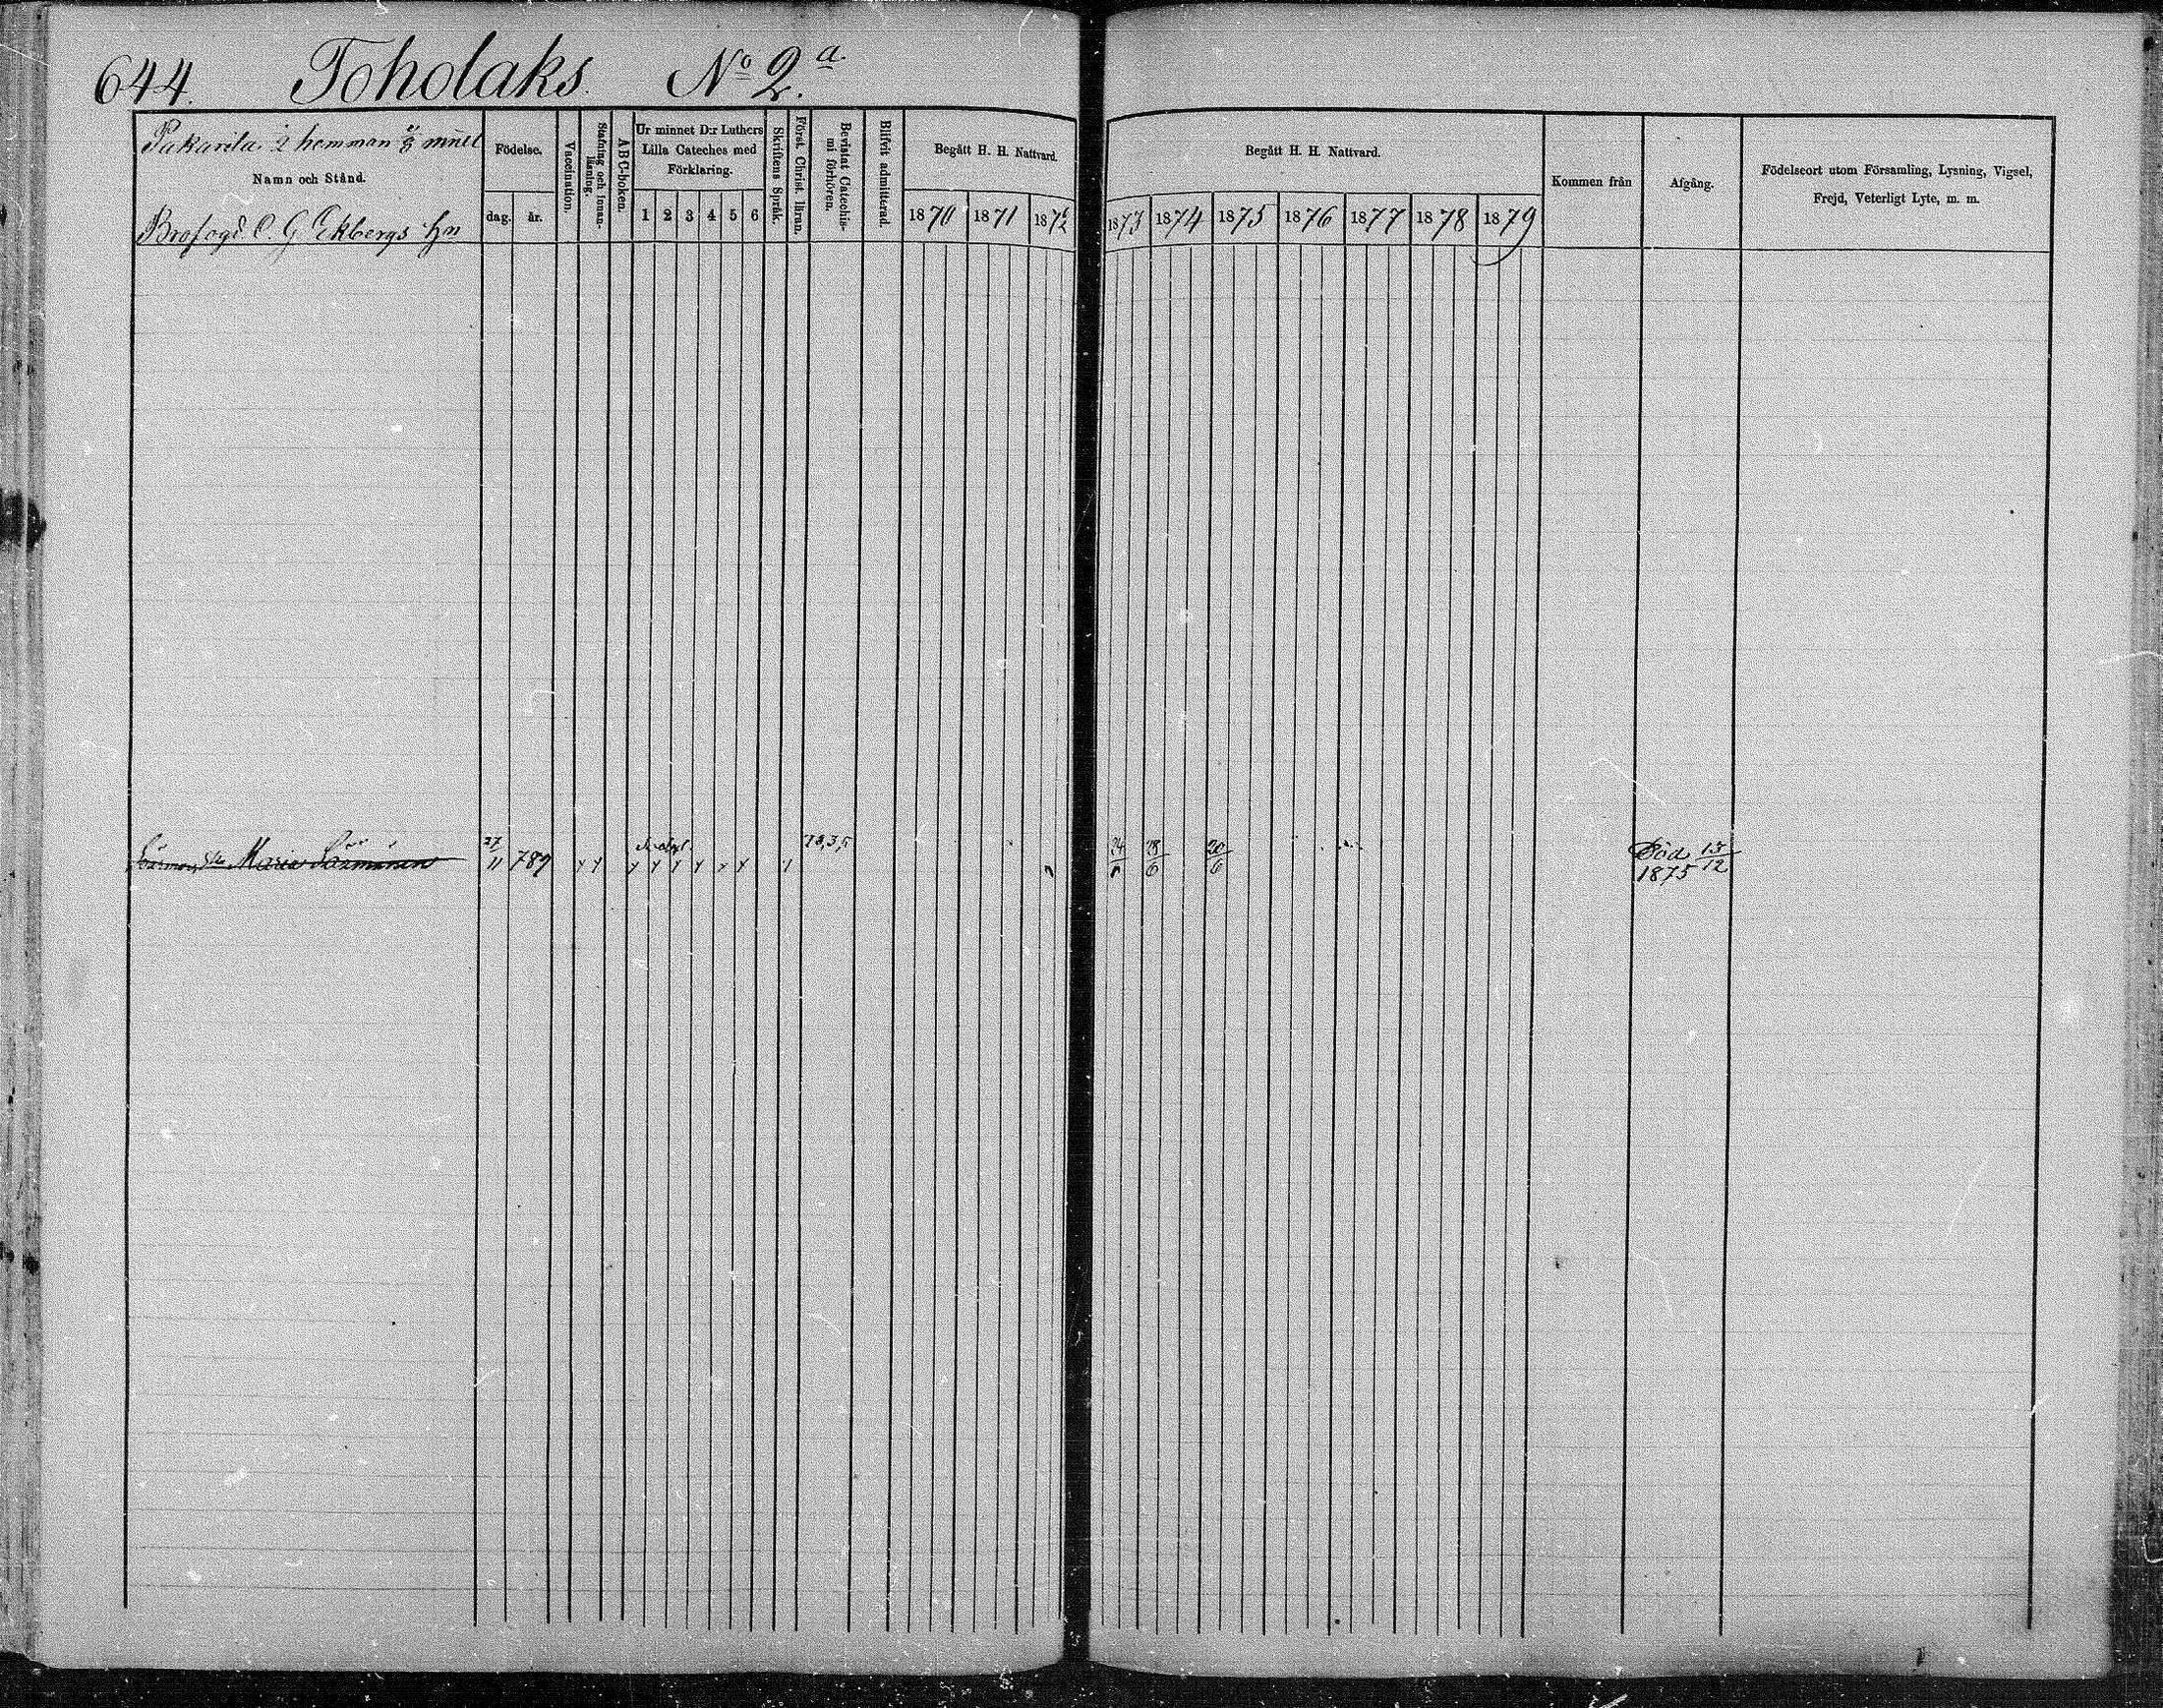 644. Toholaks. No 2. a
Pakarila. 1/2 hemman
Namn och Stånd.
Brofogd. C. G Ekbergs hn
Födelse.
dag. år.
Vaccination.
Stafning och innan-
läsning.
ABC-boken.
Ur minnet D:r Luthers
Lilla Cateches med
Förklaring.
1 2 3 4 5 6
Skriftens Språk
Först. Christ. läran.
Bevistat Catechis-
mi förhören.
Blifvit admitterad.
Begått H. H. Nattvard.
1870 1871 1872
Begått H. H. Nattvard.
1873 1874 1875 1876 1877 1878 1879
Kommen från
Afgång.
Födelseort utom Församling, Lysning, Vigsel,
Frejd, Veterligt Lyte, m. m.
Maria 27/11 789 73,5 24 28/6 20/6 Död 15/12
1875